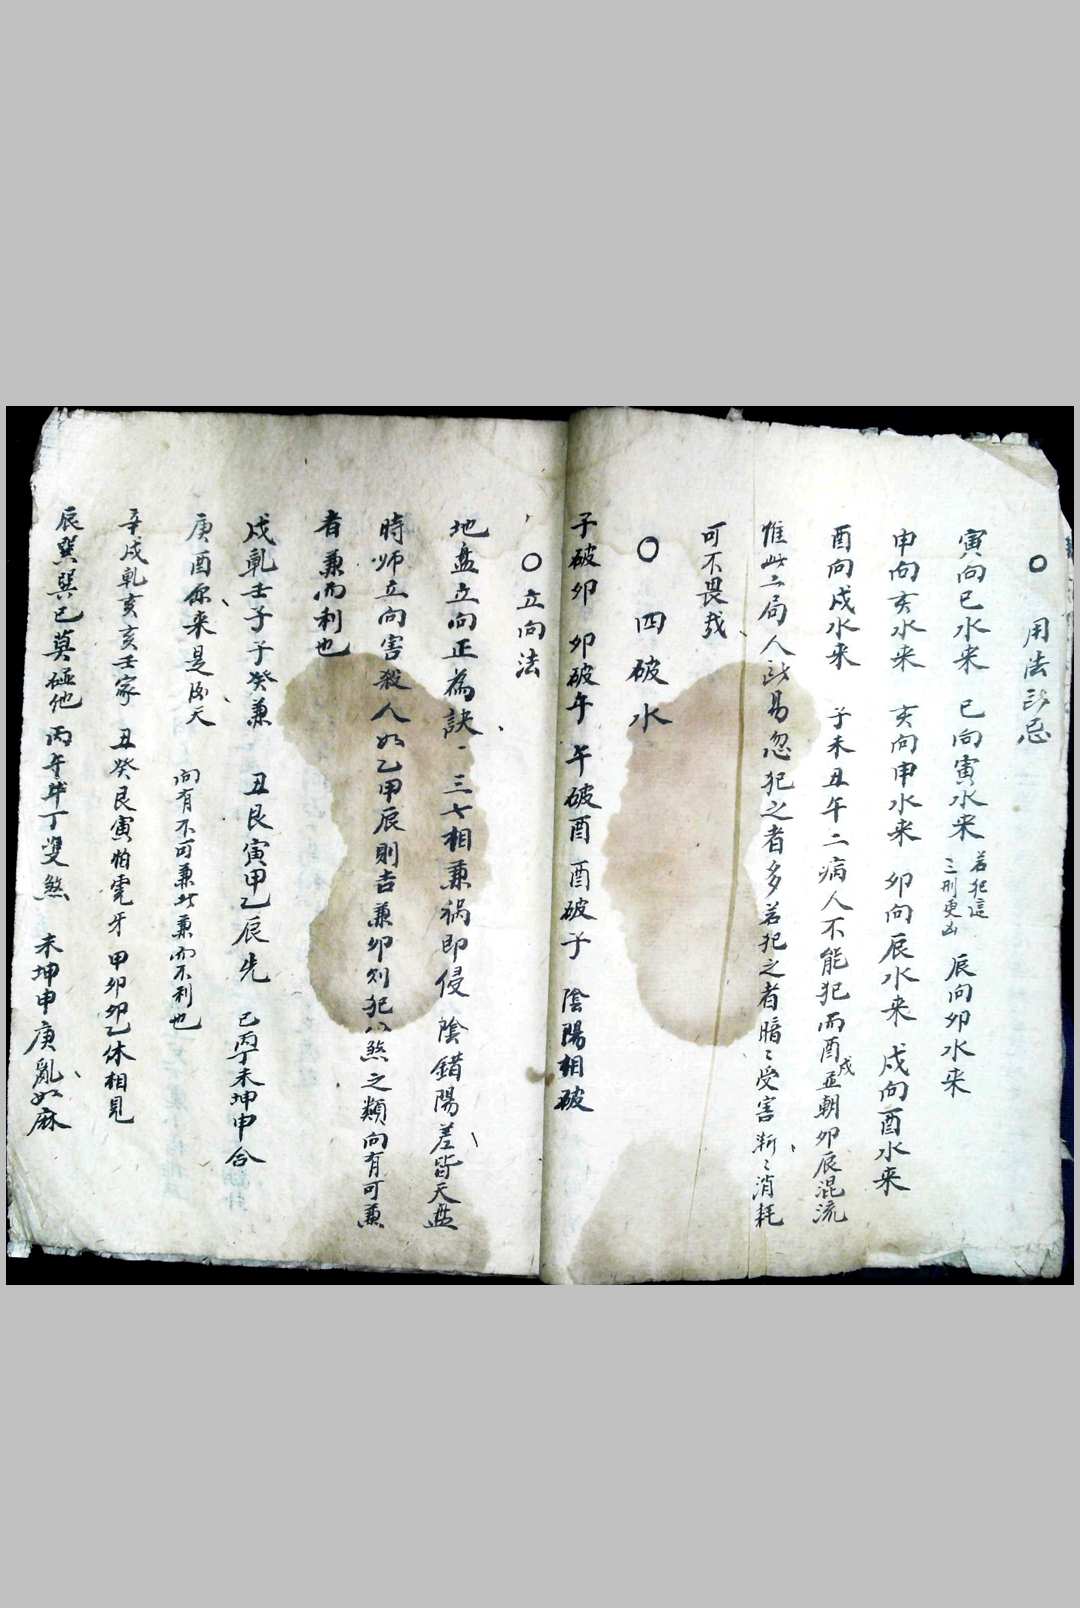 ○ 用法訣忌
寅向巳水來 巳向寅水來 若犯這三刑更凶 辰向卯水來
申向亥水來 亥向申水來 卯向辰水來 戌向酉水來
酉向戌水來 子未丑午二病人不能犯而酉戌並朝卯辰混流
惟此二局人 易忽犯之者多若犯之者暗〻受害漸〻消耗
可不畏哉
○ 四破水
子破卯 卯破午 午破酉 酉破子 陰陽相破
○ 立向法
地盘立向正為訣 三七相兼禍即侵 陰錯陽差皆天盘
時师立向害殺人如乙甲辰則吉兼卯则犯 煞之類向有可兼
者兼而利也
戌乾壬子子癸兼 丑艮寅甲乙辰先 巳丙丁未坤申合
庚酉 来是 天 向有不可兼 兼而不利也
辛戌乾亥亥壬家 丑癸艮寅怕 牙 甲卯卯乙休相見
辰巽巽巳莫碰他 丙午午丁雙煞 未坤申庚亂如麻